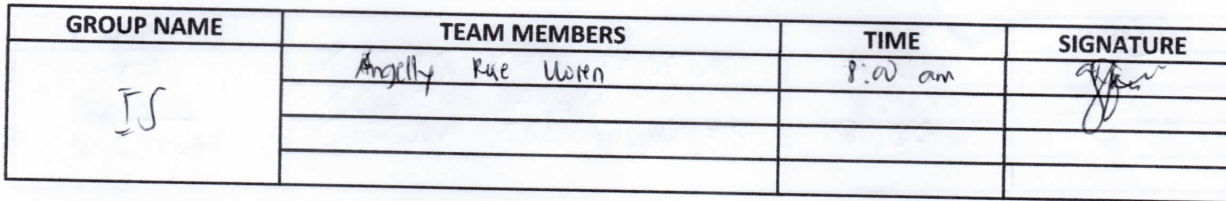 GROUP NAME TEAM MEMBERS TIME SIGNATURE
IS Angelly Rue Lloren 8:00 am